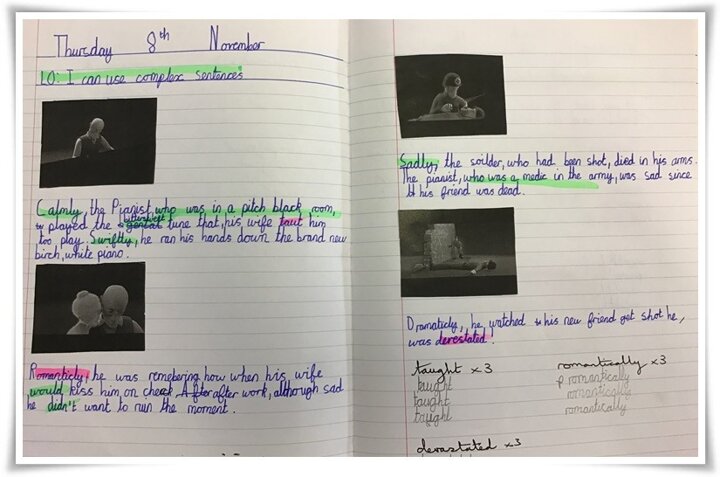 Thursday 8th November
LO: I can use complex sentences
Calmly, the Pianist who was in a pitch black room,
played the tune that, his wife taut him
too play. Swiftly, he ran his hands down the brand new
birch, white piano.
Romanticly, he was remebering how when his wife
would kiss him on cheek after work, although sad
he didn't want to ruin the moment.
Sadly, the soilder, who had been shot, died in his arms.
The pianist, who was a medic in the army, was sad since
his friend was dead.
Dramaticly, he watched his new friend get shot he,
was devestated.
taught x3
taught
taught
taught
romantically x3
romantically
romantically
romantically
devastated x3